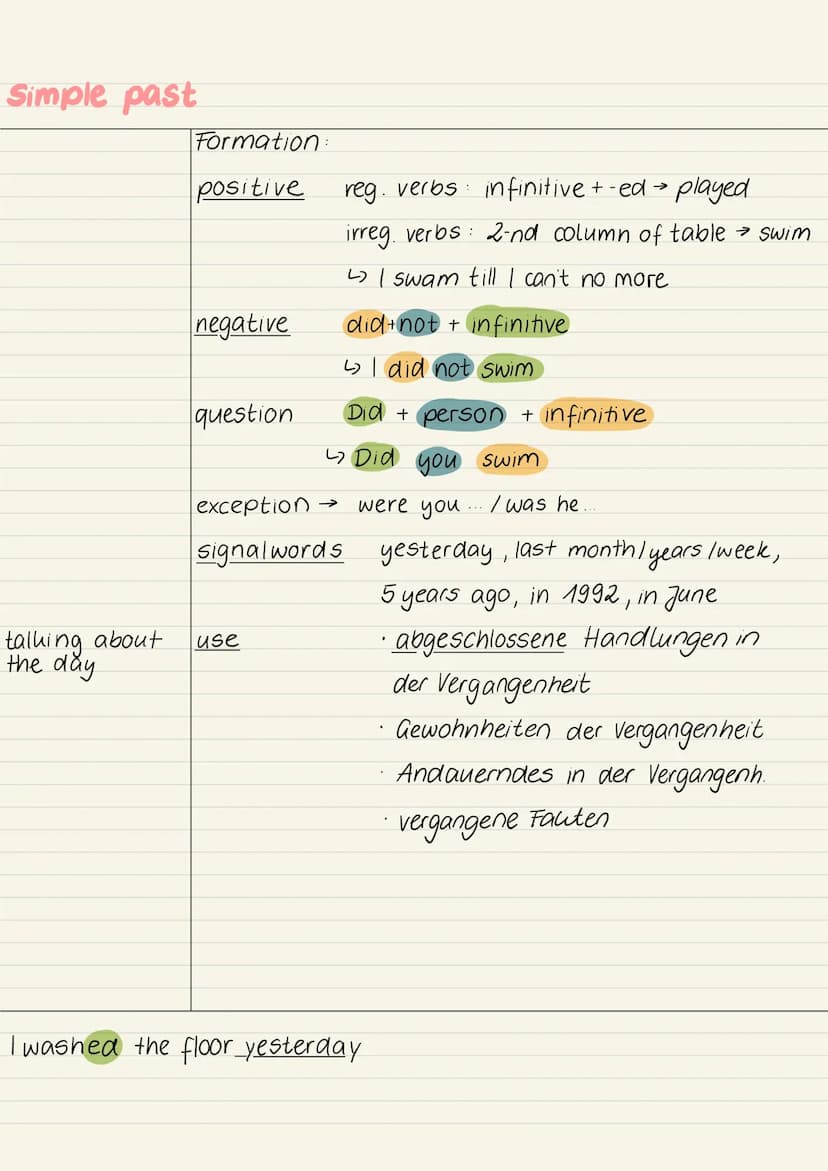 Simple past
Formation:
positive reg. verbs: infinitive + -ed → played
irreg. verbs: 2-nd column of table → swim
↳ I swam till I can't no more
negative did + not + infinitive
↳ I did not swim
question Did + person + infinitive
↳ Did you swim
exception → were you ... / was he ...
signalwords yesterday, last month/years/week,
5 years ago, in 1992, in June
talking about
the day
use · abgeschlossene Handlungen in
der Vergangenheit
· Gewohnheiten der Vergangenheit
· Andauerndes in der Vergangenh.
· vergangene Fakten
I washed the floor yesterday